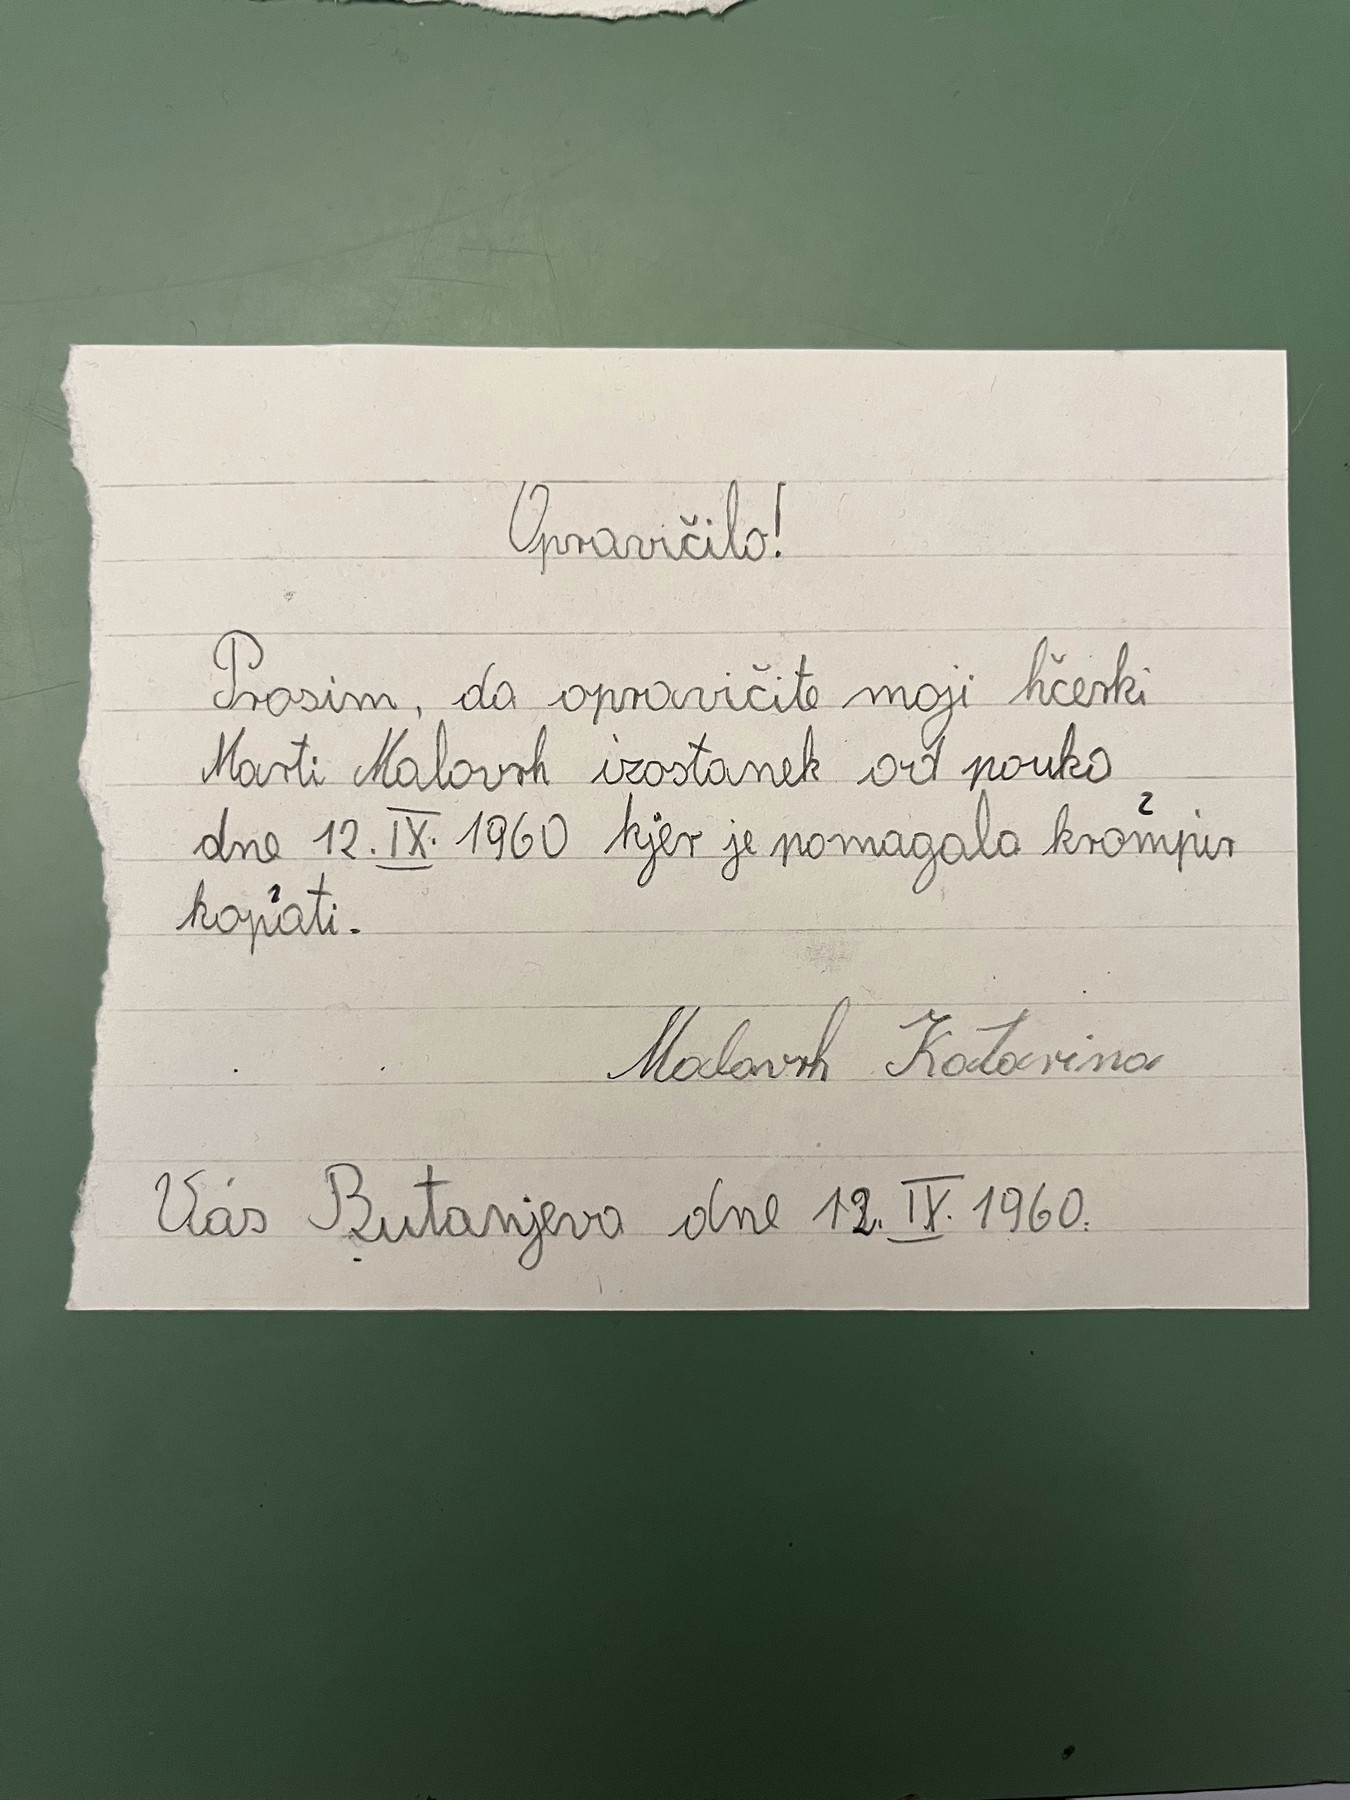 Opravičilo!
Prosim, da opravičite moji hčerki
Marti Malovrh izostanek od pouka
dne 12. IX. 1960 kjer je pomagala krompir
kopati.
Malovrh Katarina
Vas Butanjeva dne 12. IX. 1960.